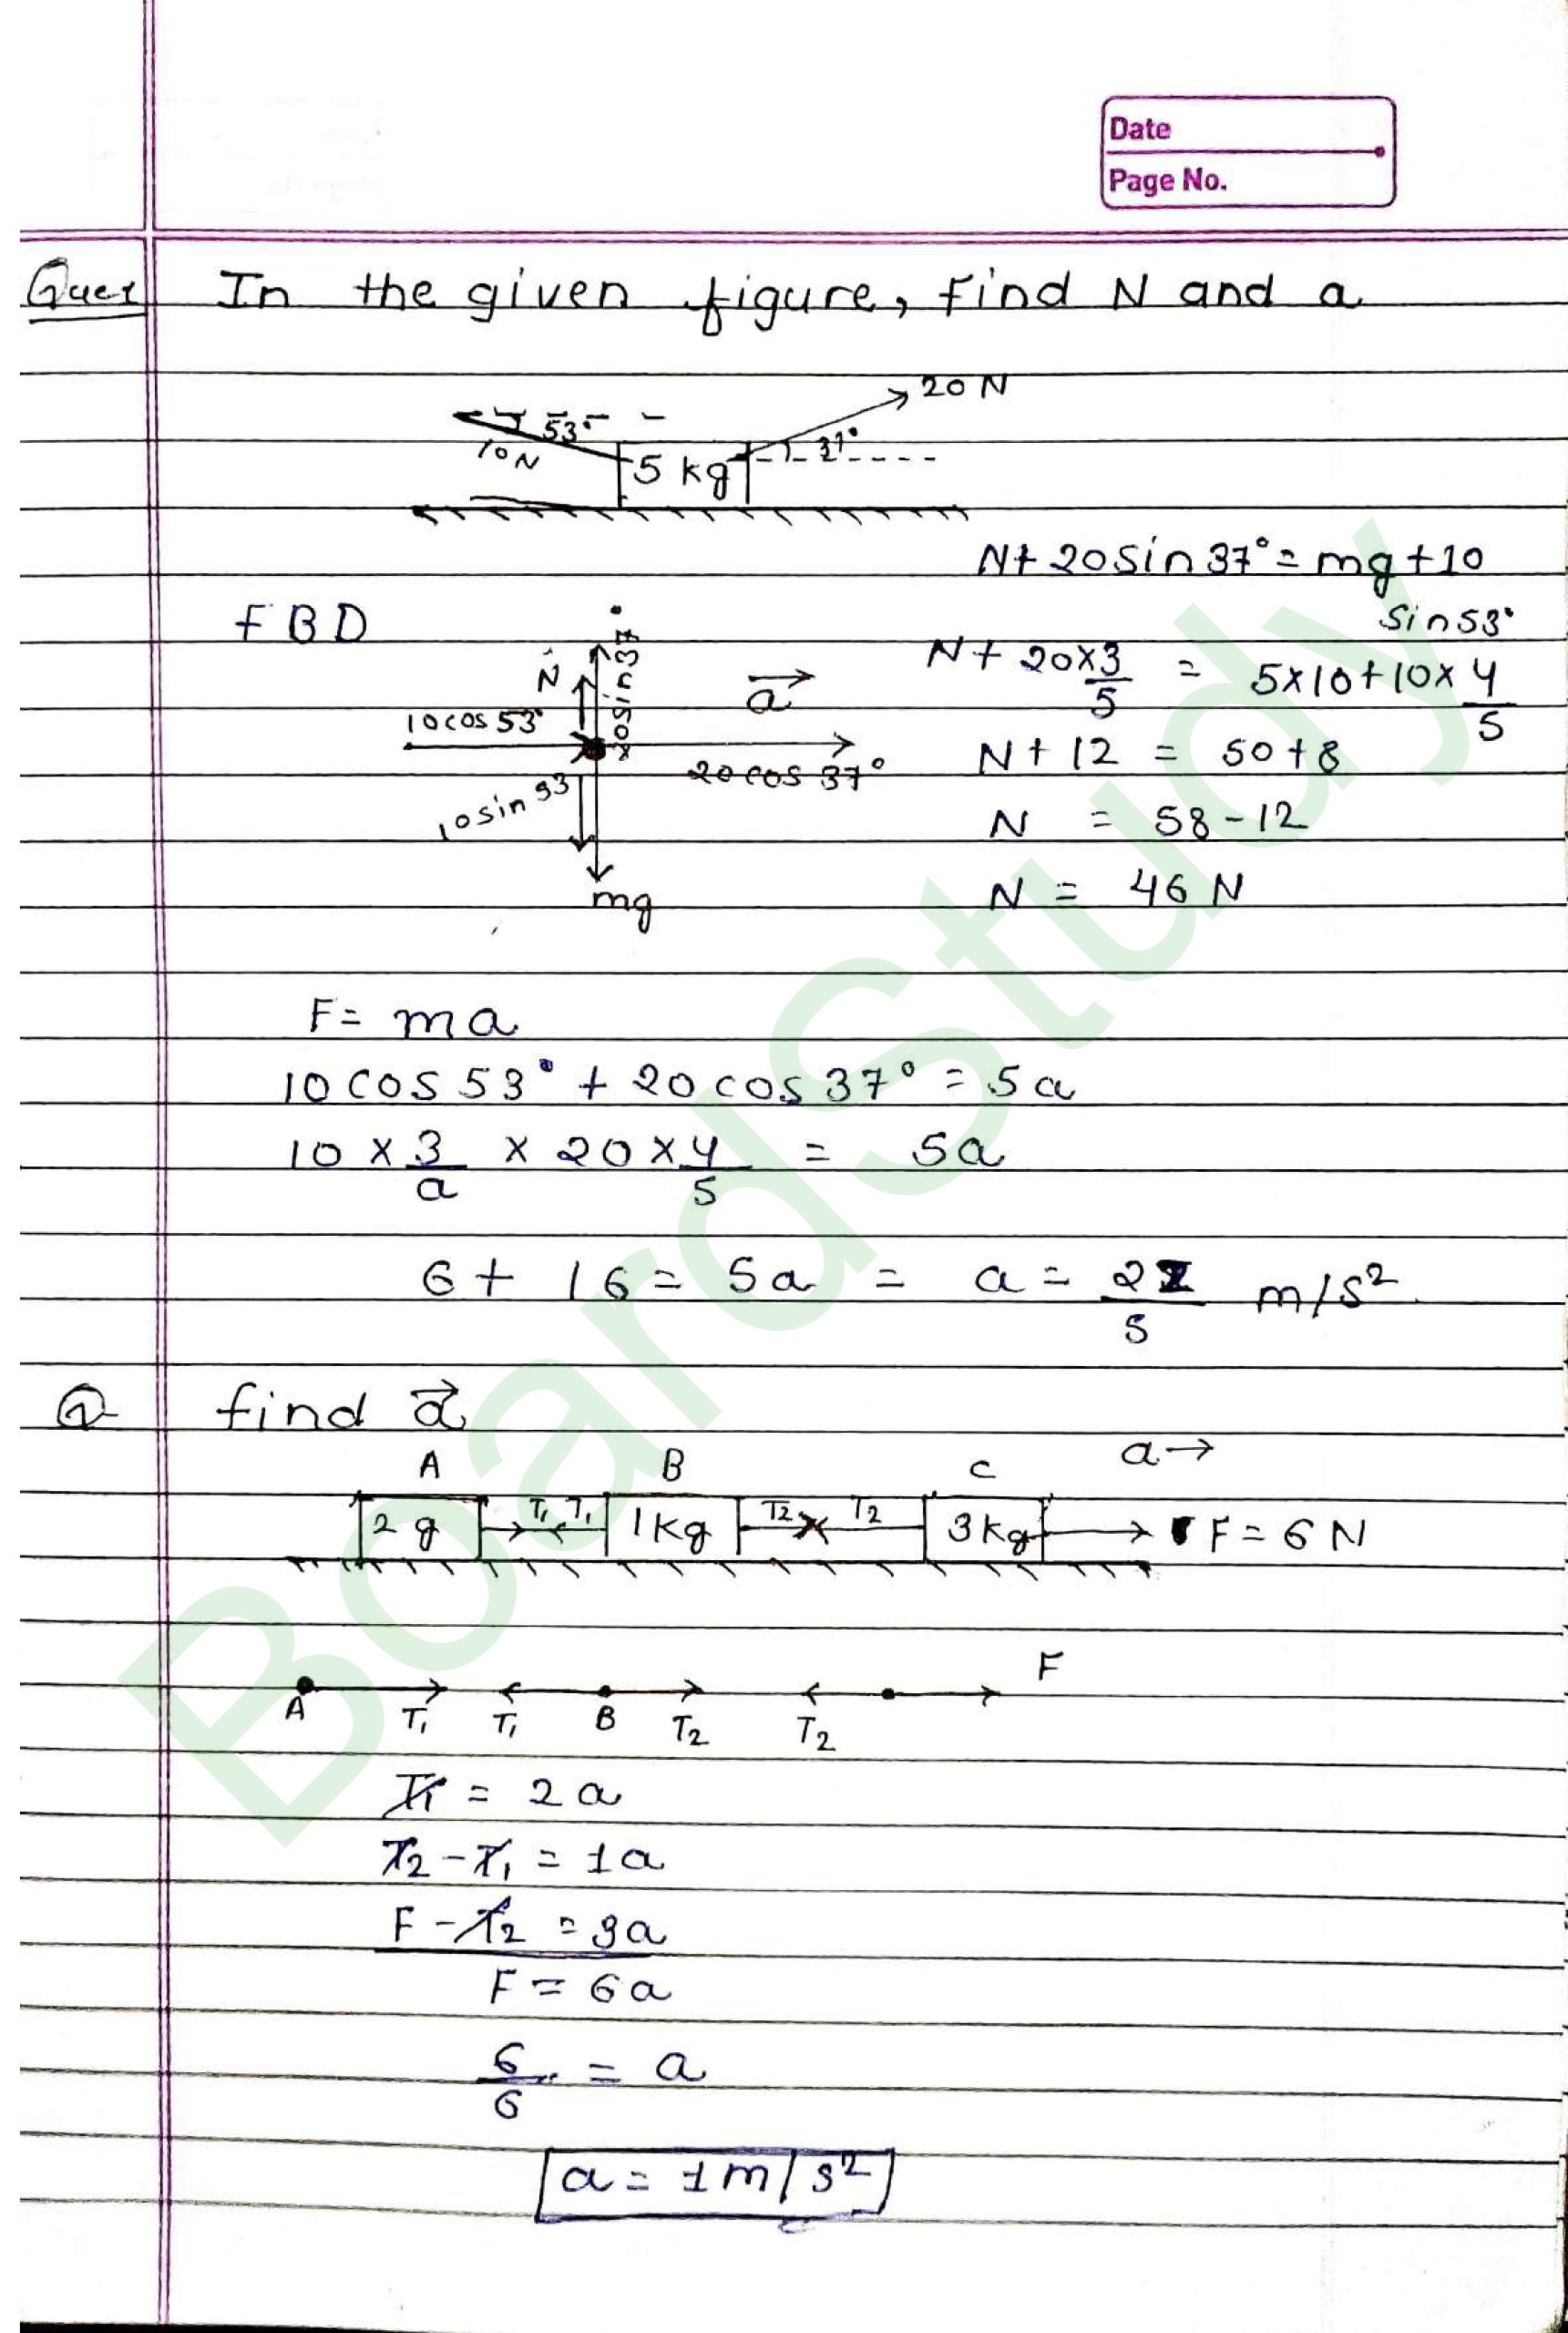 Date
Page No.
Ques In the given figure, find N and a
20 N
53°
10 N
37°
5 kg
N + 20 sin 37° = mg + 10 sin 53°
FBD
N
20 sin 37°
a
N + 20×3/5 = 5×10 + 10×4/5
10 cos 53°
20 cos 37°
N + 12 = 50 + 8
10 sin 53
N = 58 - 12
mg
N = 46 N
F = ma
10 cos 53° + 20 cos 37° = 5a
10 × 3/a × 20 × 4/5 = 5a
6 + 16 = 5a = a = 22/5 m/s²
Q find a⃗
A B C a→
2 g T₁ T₁ 1 kg T₂ T₂ 3 kg F = 6 N
F
A T₁ T₁ B T₂ T₂
T₁ = 2a
T₂ - T₁ = 1a
F - T₂ = 3a
F = 6a
6/6 = a
a = 1 m/s²
BoardStudy